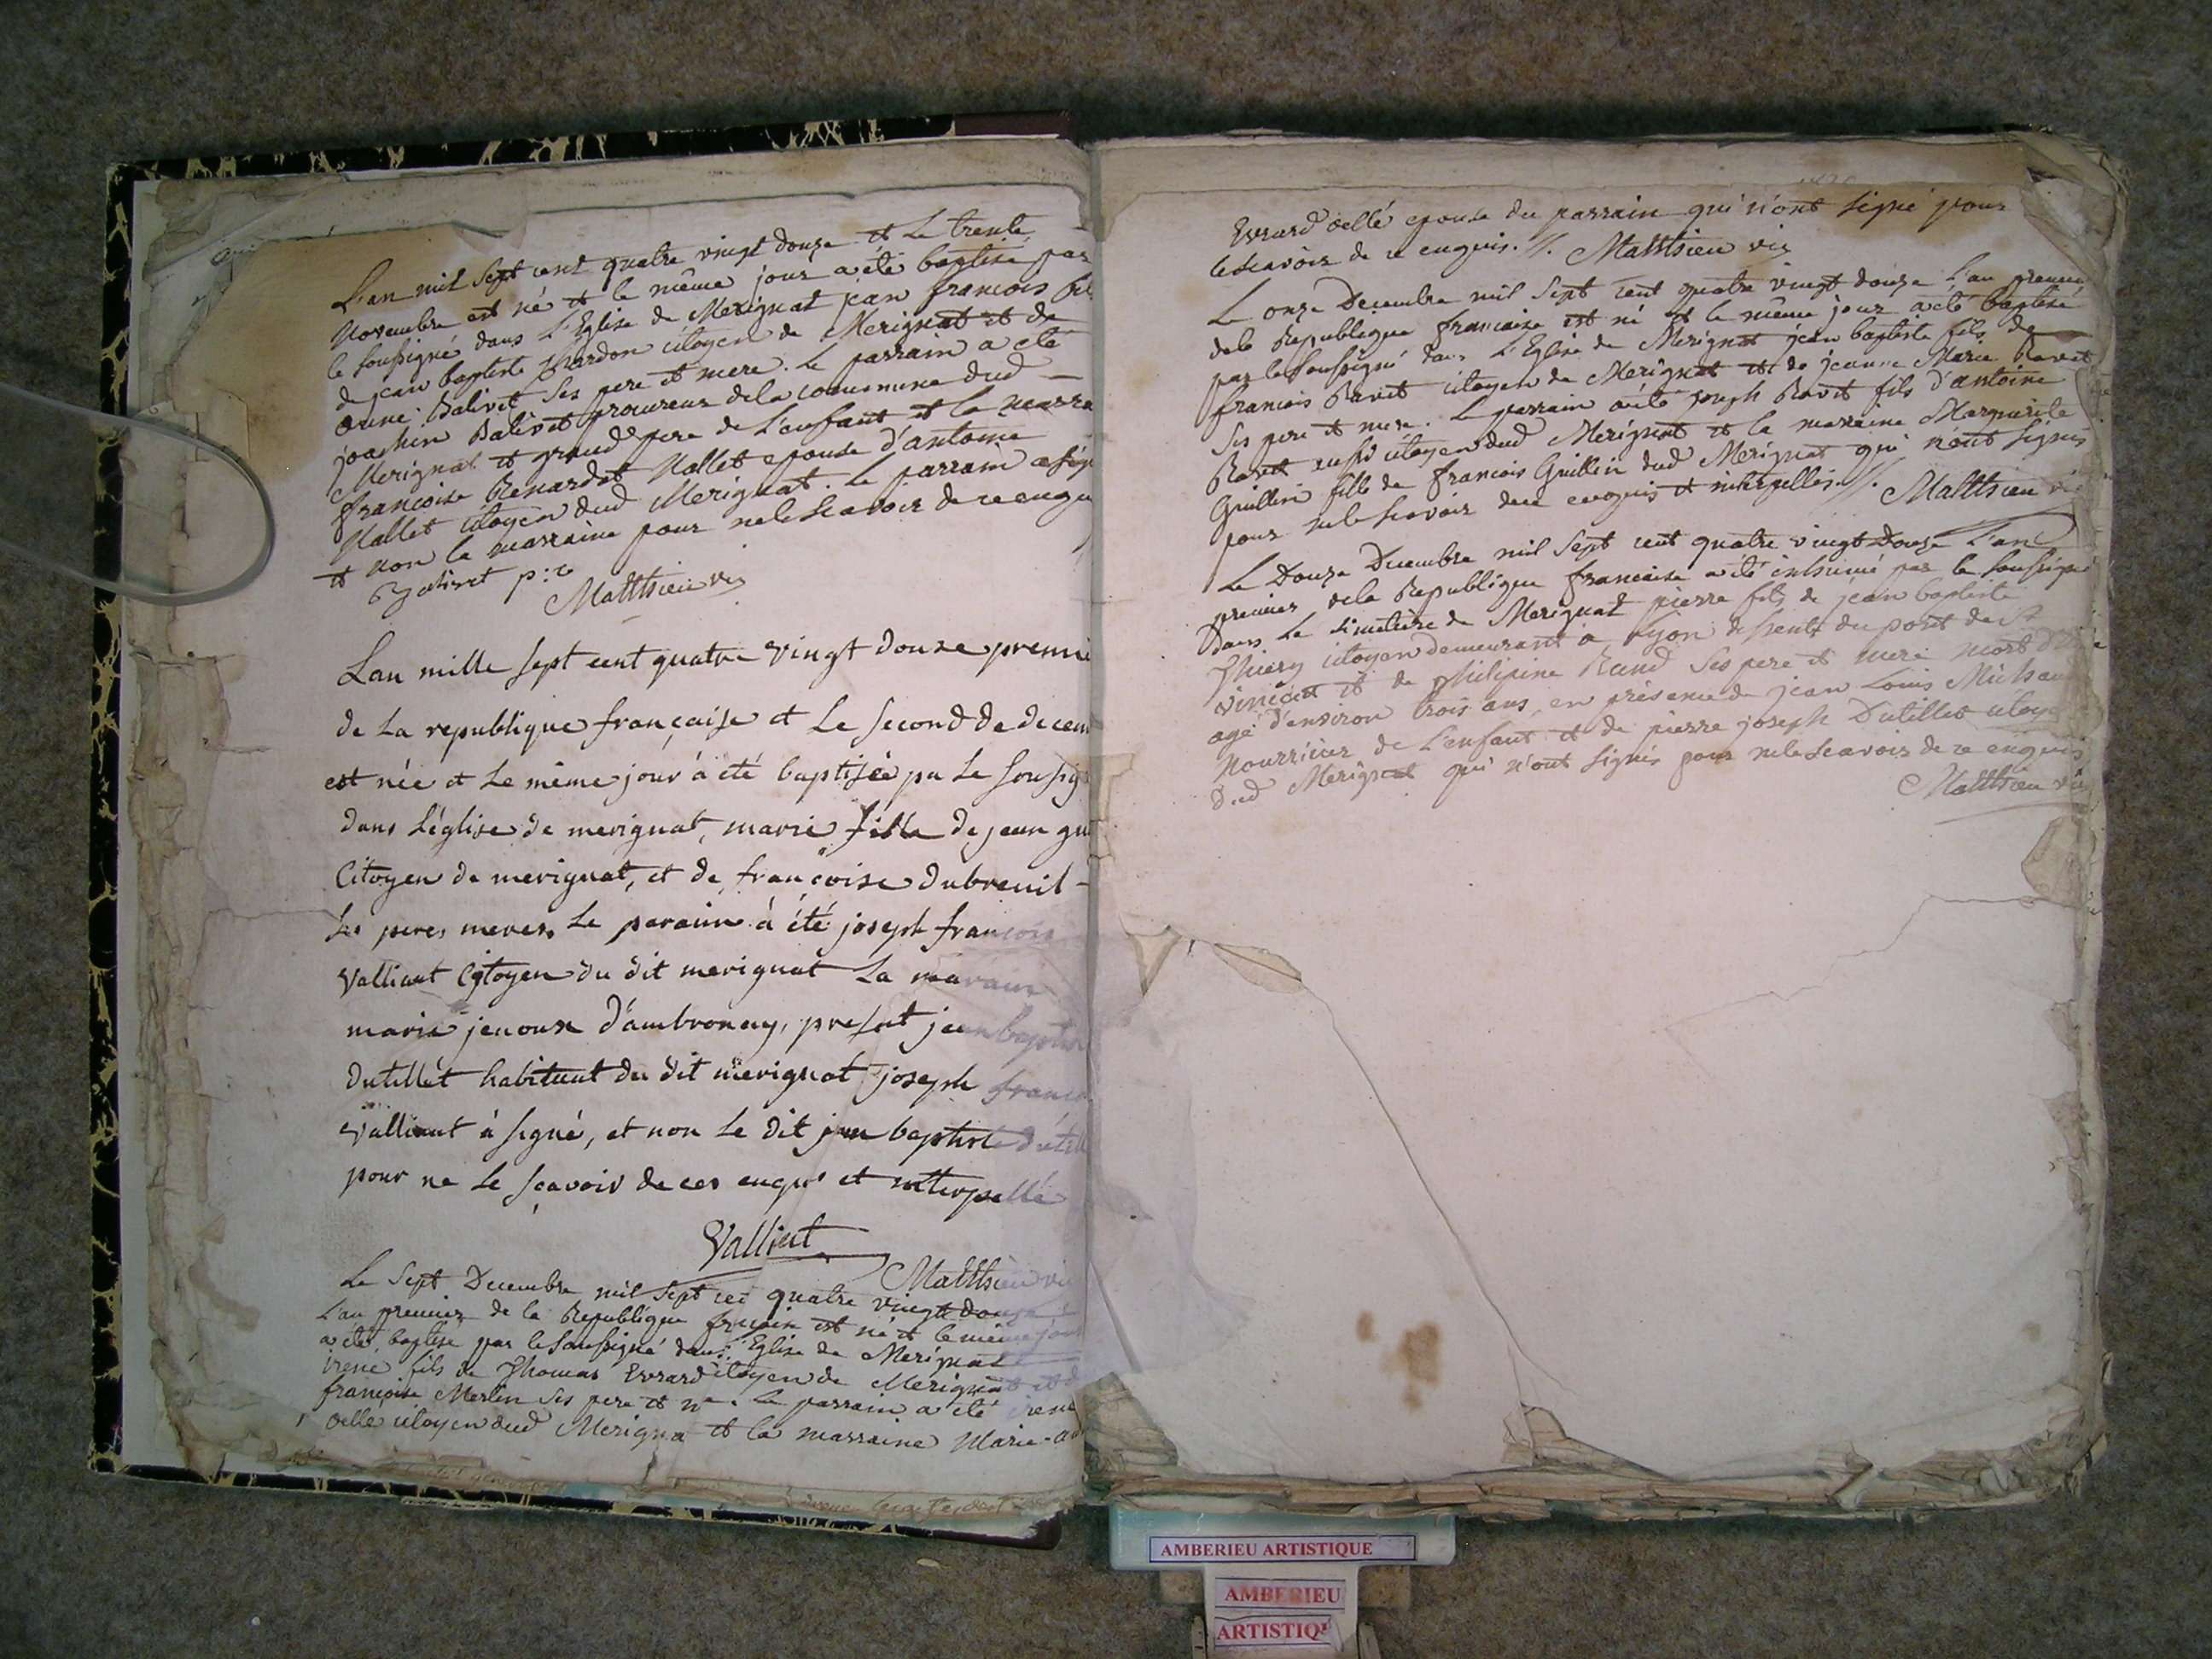 L'an mil Sept cent quatre vingt douze et Le trente
Novembre est né et le même jour a été baptisé par
le soussigné dans L'Eglise de Merignat jean francois fils
de jean baptiste Chardon citoyen de Merignat et de
Anne Balivet ses pere et mere. Le parrain a été
joachim Balivet procureur de la commune dud
Merignat et grand pere de L'enfant et la marra
francoise Renardet Nallet epouse d'antoine
Nallet citoyen dud Merignat. Le parrain a sig
et non la marraine pour ne le scavoir de ce enqu
Balivet p:r
Matthieu vic
L'an mille sept cent quatre vingt douze premie
de La republique française et Le second de decem
est née et Le même jour à été baptisée pa Le soussig
dans L'église de merignat, marie fille de jean gu
Citoyen de merignat, et de françoise dubreuil
Ses peres meres, Le parain à été joseph francois
Valliant Citoyen du dit merignat La maraine
marie jenoux d'ambronay, present jean baptiste
Dutillet habitant du dit merignat joseph franco
Valliant à signé, et non Le dit jean baptiste dutill
pour ne Le sçavoir de ces enquis et interpellé
Valliant
Matthieu vic
Le Sept Decembre mil Sept cet quatre vingt douze
L'an premier de la Republique est né et le même jour
a été baptise par le soussigné dans L'Eglise de Merignat
irene fils de Thomas Evrard citoyen de Merignat et d
françoise Merlin ses pere et m. Le parrain a été irene
citoyen dud Merignat et la marraine Marie
Evrard epouse du parrain qui n'ont signé pour
le scavoir de ce enquis. //. Matthieu vic
Le onze Decembre mil Sept cent quatre vingt douze L'an premier
de la Republique francaise est né et le même jour a été baptisé
par le soussigné dans L'Eglise de Merignat jean baptiste fils de
francois Ravet citoyen de Merignat et de jeanne Marie Ravet
ses pere et mere. Le parrain a été joseph Ravet fils d'antoine
Ravet aussi citoyen dud Merignat et la marraine Marguerite
Guillin fille de francois Guillin dud Merignat qui n'ont signés
pour ne le scavoir de ce enquis et interpellés. //. Matthieu vic
Le Douze Decembre mil Sept cent quatre vingt Douze L'an
premier de la Republique francaise a été inhumé par le soussigné
Dans Le simetiere de Merignat pierre fils de jean baptiste
Thiery citoyen demeurant a Lyon dessente du pont de St
vincent et de philipine Rand ses pere et mere mort
agé d'environ trois ans, en présence de jean Louis Michau
nourricier de L'enfant et de pierre joseph Dutillet citoye
Dud Merignat qui n'ont signés pour ne le scavoir de ce enquis
Matthieu vic
AMBERIEU ARTISTIQUE
AMBERIEU
ARTISTIQU